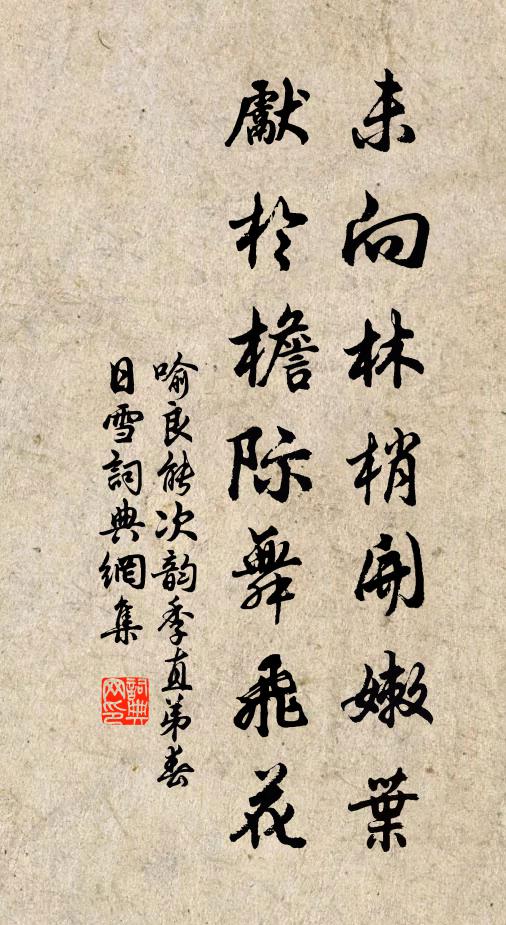 未向林梢開嫩葉
獻於檐際舞飛花
喻良能次韵季直弟春
日雪詞典網集
詞典网印